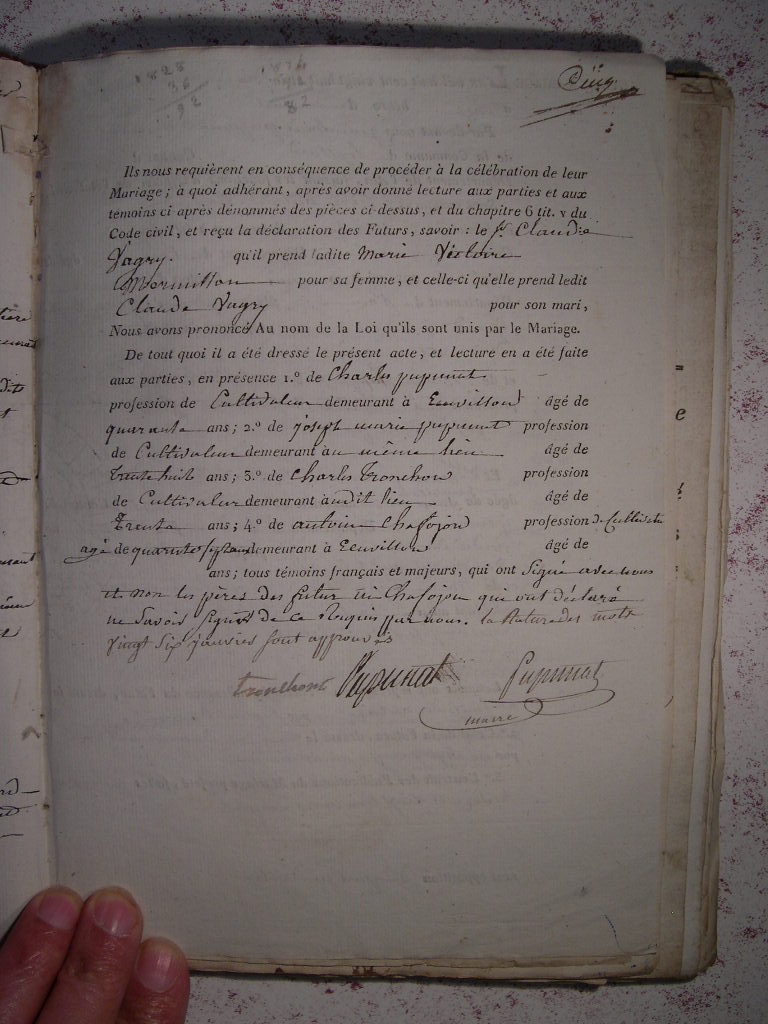 1828
36
92
82
Cinq
Ils nous requièrent en conséquence de procéder à la célébration de leur
Mariage ; à quoi adhérant, après avoir donné lecture aux parties et aux
temoins ci après dénommés des pièces ci-dessus, et du chapitre 6 tit. v du
Code civil, et reçu la déclaration des Futurs, savoir : le Sr. Claude
Vagry. qu'il prend ladite Marie Victoire
pour sa femme, et celle-ci qu'elle prend ledit
Claude Vagry pour son mari,
Nous avons prononcé Au nom de la Loi qu'ils sont unis par le Mariage.
De tout quoi il a été dressé le présent acte, et lecture en a été faite
aux parties, en présence 1.º de Charles pupunat
profession de Cultivateur demeurant à Ecuvillon âgé de
quarante ans ; 2.º de joseph marie pupunat profession
de Cultivateur demeurant au même lieu âgé de
trente huit ans ; 3.º de Charles Tronchon profession
de Cultivateur demeurant audit lieu âgé de
Trente ans ; 4.º de antoine Chafojon profession de Cultivateur
agé de quarante sept ans demeurant à Ecuvillon âgé de
ans ; tous témoins français et majeurs, qui ont Signé avec nous
et non les pères des futur ni Chafojon qui ont déclaré
ne Savoir Signer de ce Requis par nous. la Rature des mots
vingt Six janvier sont approuvés
tronchont Pupunat Pupunat
maire